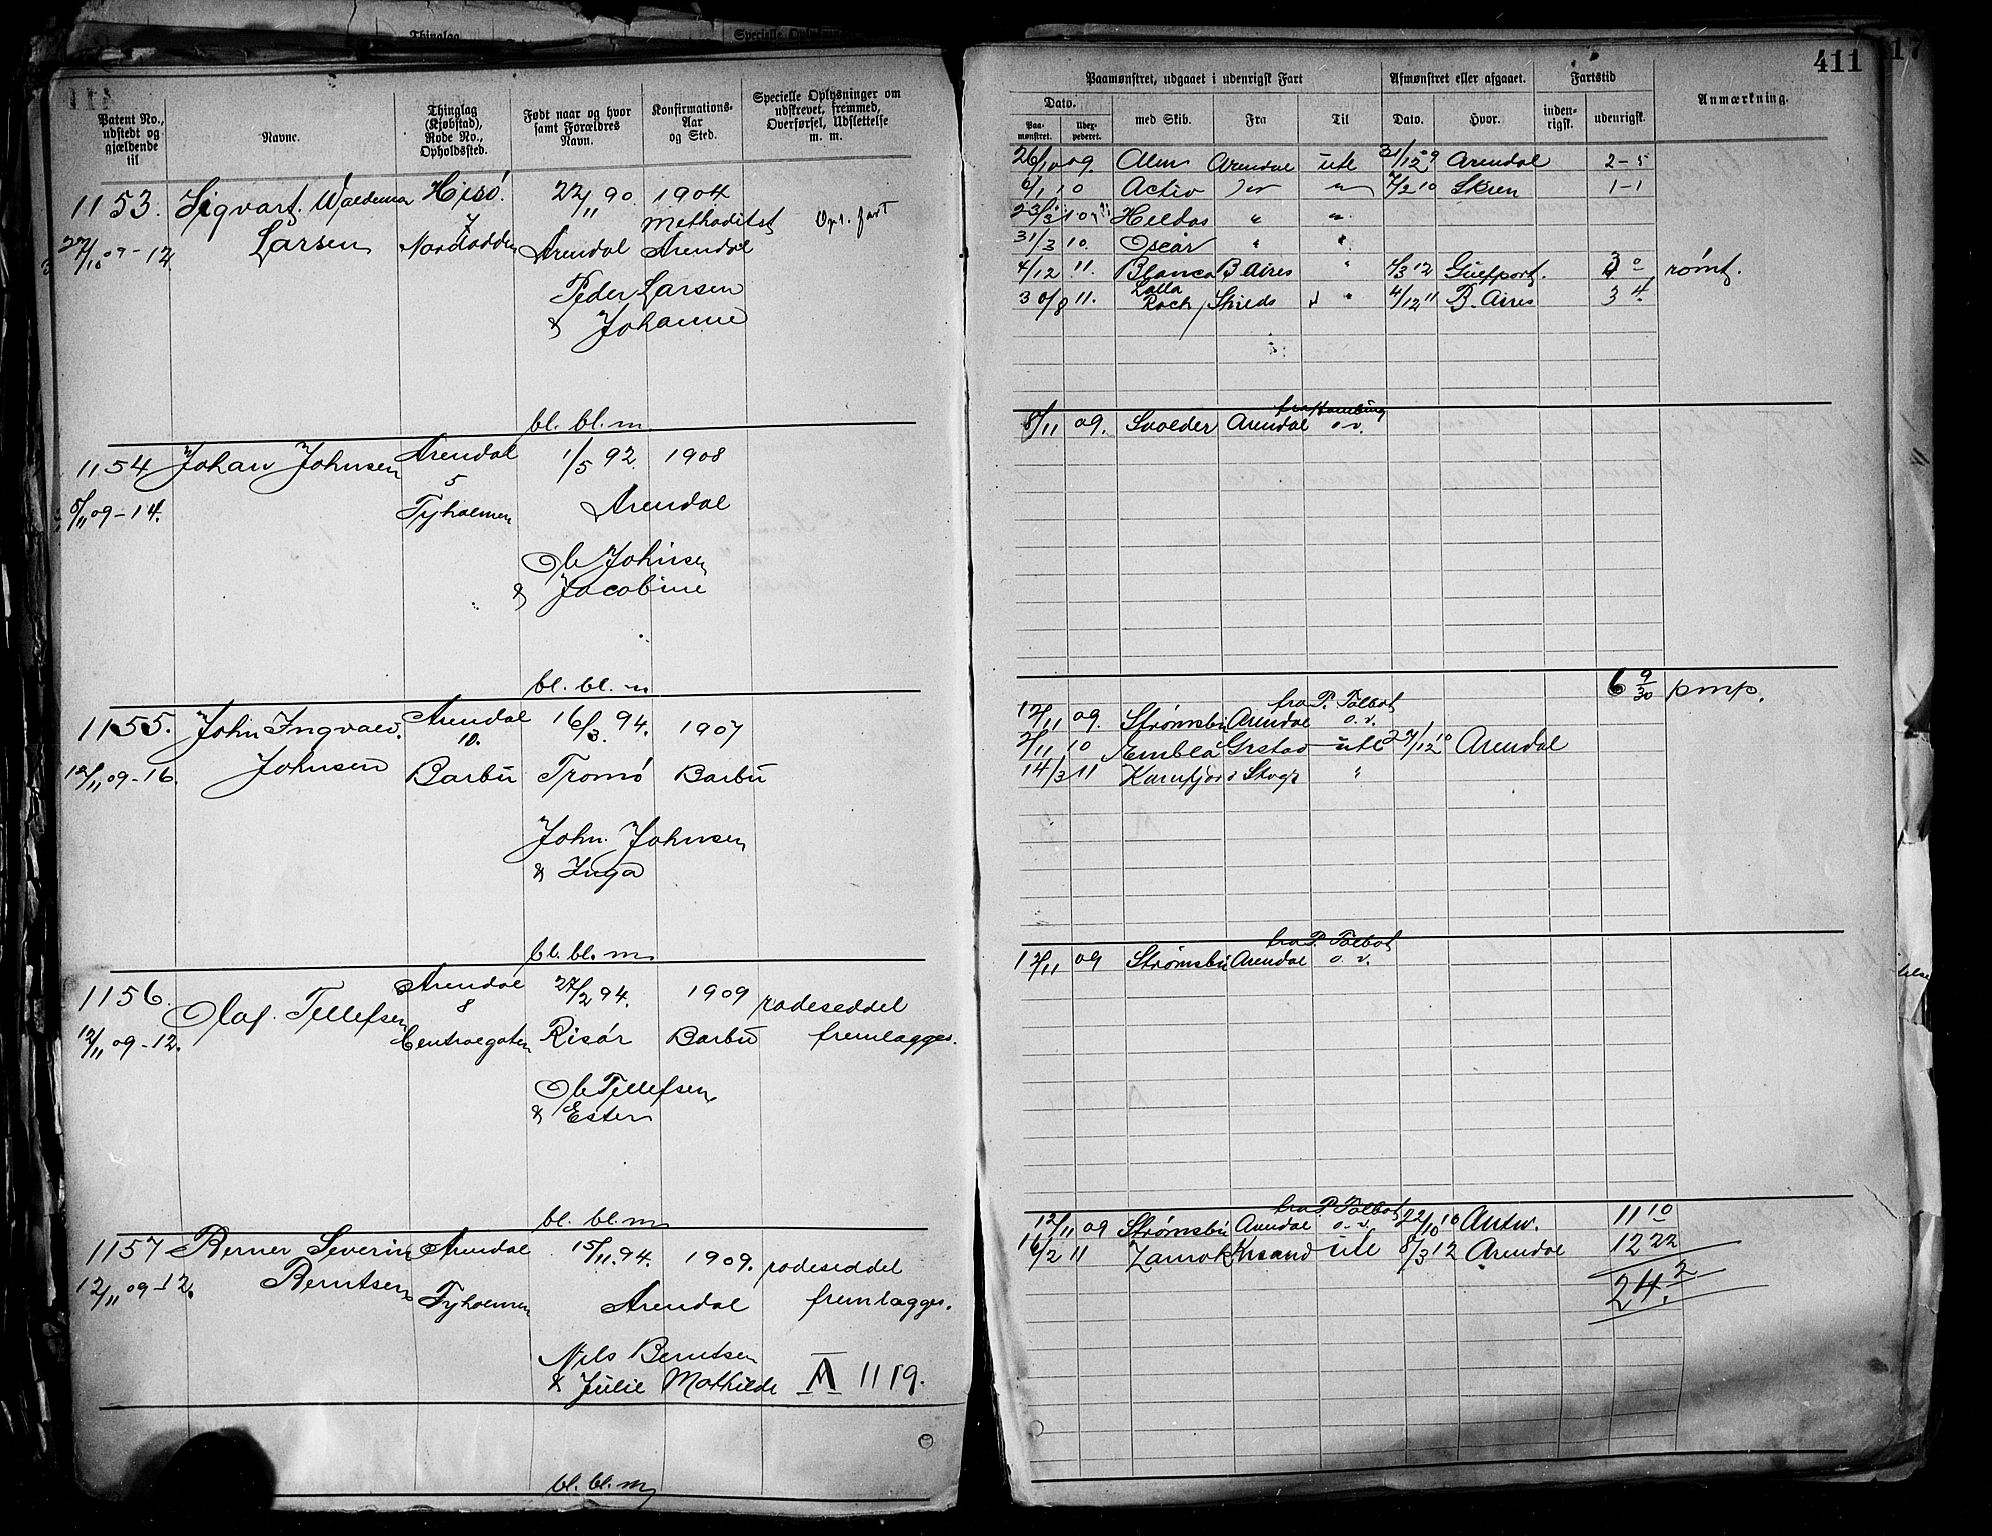 411
Patent No., udstedt og gjældende til
Navne.
Thinglag (Kjøbstad), Rode No., Opholdssted.
Født naar og hvor samt Forældres Navn.
Konfirmations-Aar og Sted.
Specielle Oplysninger om udskrevet, fremmed, Overførsel, Udslettelse m. m.
Paamønstret, udgaaet i udenrigsk Fart
Afmønstret eller afgaaet.
Fartstid
Anmærkning.
Dato.
med Skib.
Fra
Til
Dato.
Hvor.
inden-rigsk.
udenrigsk.
Paa-mønstret.
Udex-pederet.
1153. Sigvart Waldemar Hisö. 22/11 90. 1904
Methodist
27/10 09-12 Larsen 7 Nordodden Arendal Arendal
Peder Larsen
& Johanne
bl. bl. m
26/10 09. Alm Arendal utl 31/12 09 Arendal 2-5
6/1 10 Activ " 7/2 10 Skien 1-1
Heldos " "
31/3 10. Oscar " "
4/12 11. Blanca B Aires " 4/3 12 Gulfport. 3 0 rømt.
30/8 11. Lalla Rock Shields " 4/12 11 B. Aires 3 4
1154 Johan Johnsen Arendal 1/5 92. 1908
8/11 09-14. 5 Tyholmen Arendal
Ole Johnsen
& Jacobine
bl. bl. m
fra Hamburg
8/11 09. Svolder Arendal o.v.
1155. John Ingvald Arendal 16/3 94. 1907
10.
12/11 09-16. Johnsen Barbu Tromö Barbu
John Johnsen
& Inga
bl. bl. m
6 9/30 pmp.
fra P. Talbot
12/11 09. Strømsbu Arendal o.v.
2/11 10 Embla Grstad utl 27/12 10 Arendal
14/3 11 "
1156. Olaf Tellefsen Arendal 27/2 94. 1909 rodeseddel
8
12/11 09-12. Centralgaten Risör Barbu fremlægges.
Ole Tellefsen
& Ester
bl. bl. m
fra P. Talbot
12/11 09 Strømsbu Arendal o.v.
1157 Berner Severin Arendal 15/11 94. 1909. rodeseddel
12/11 09-12. Berntsen Tyholmen Arendal fremlægges.
Nils Berntsen
& Julie Mathilde A 1119.
bl. bl. m
fra P. Talbot
12/11 09 Strømsbu Arendal o.v. 22/10 10 Antw. 11 10
16/2 11 Krsand utl 8/3 12 Arendal 12 22
24. 2